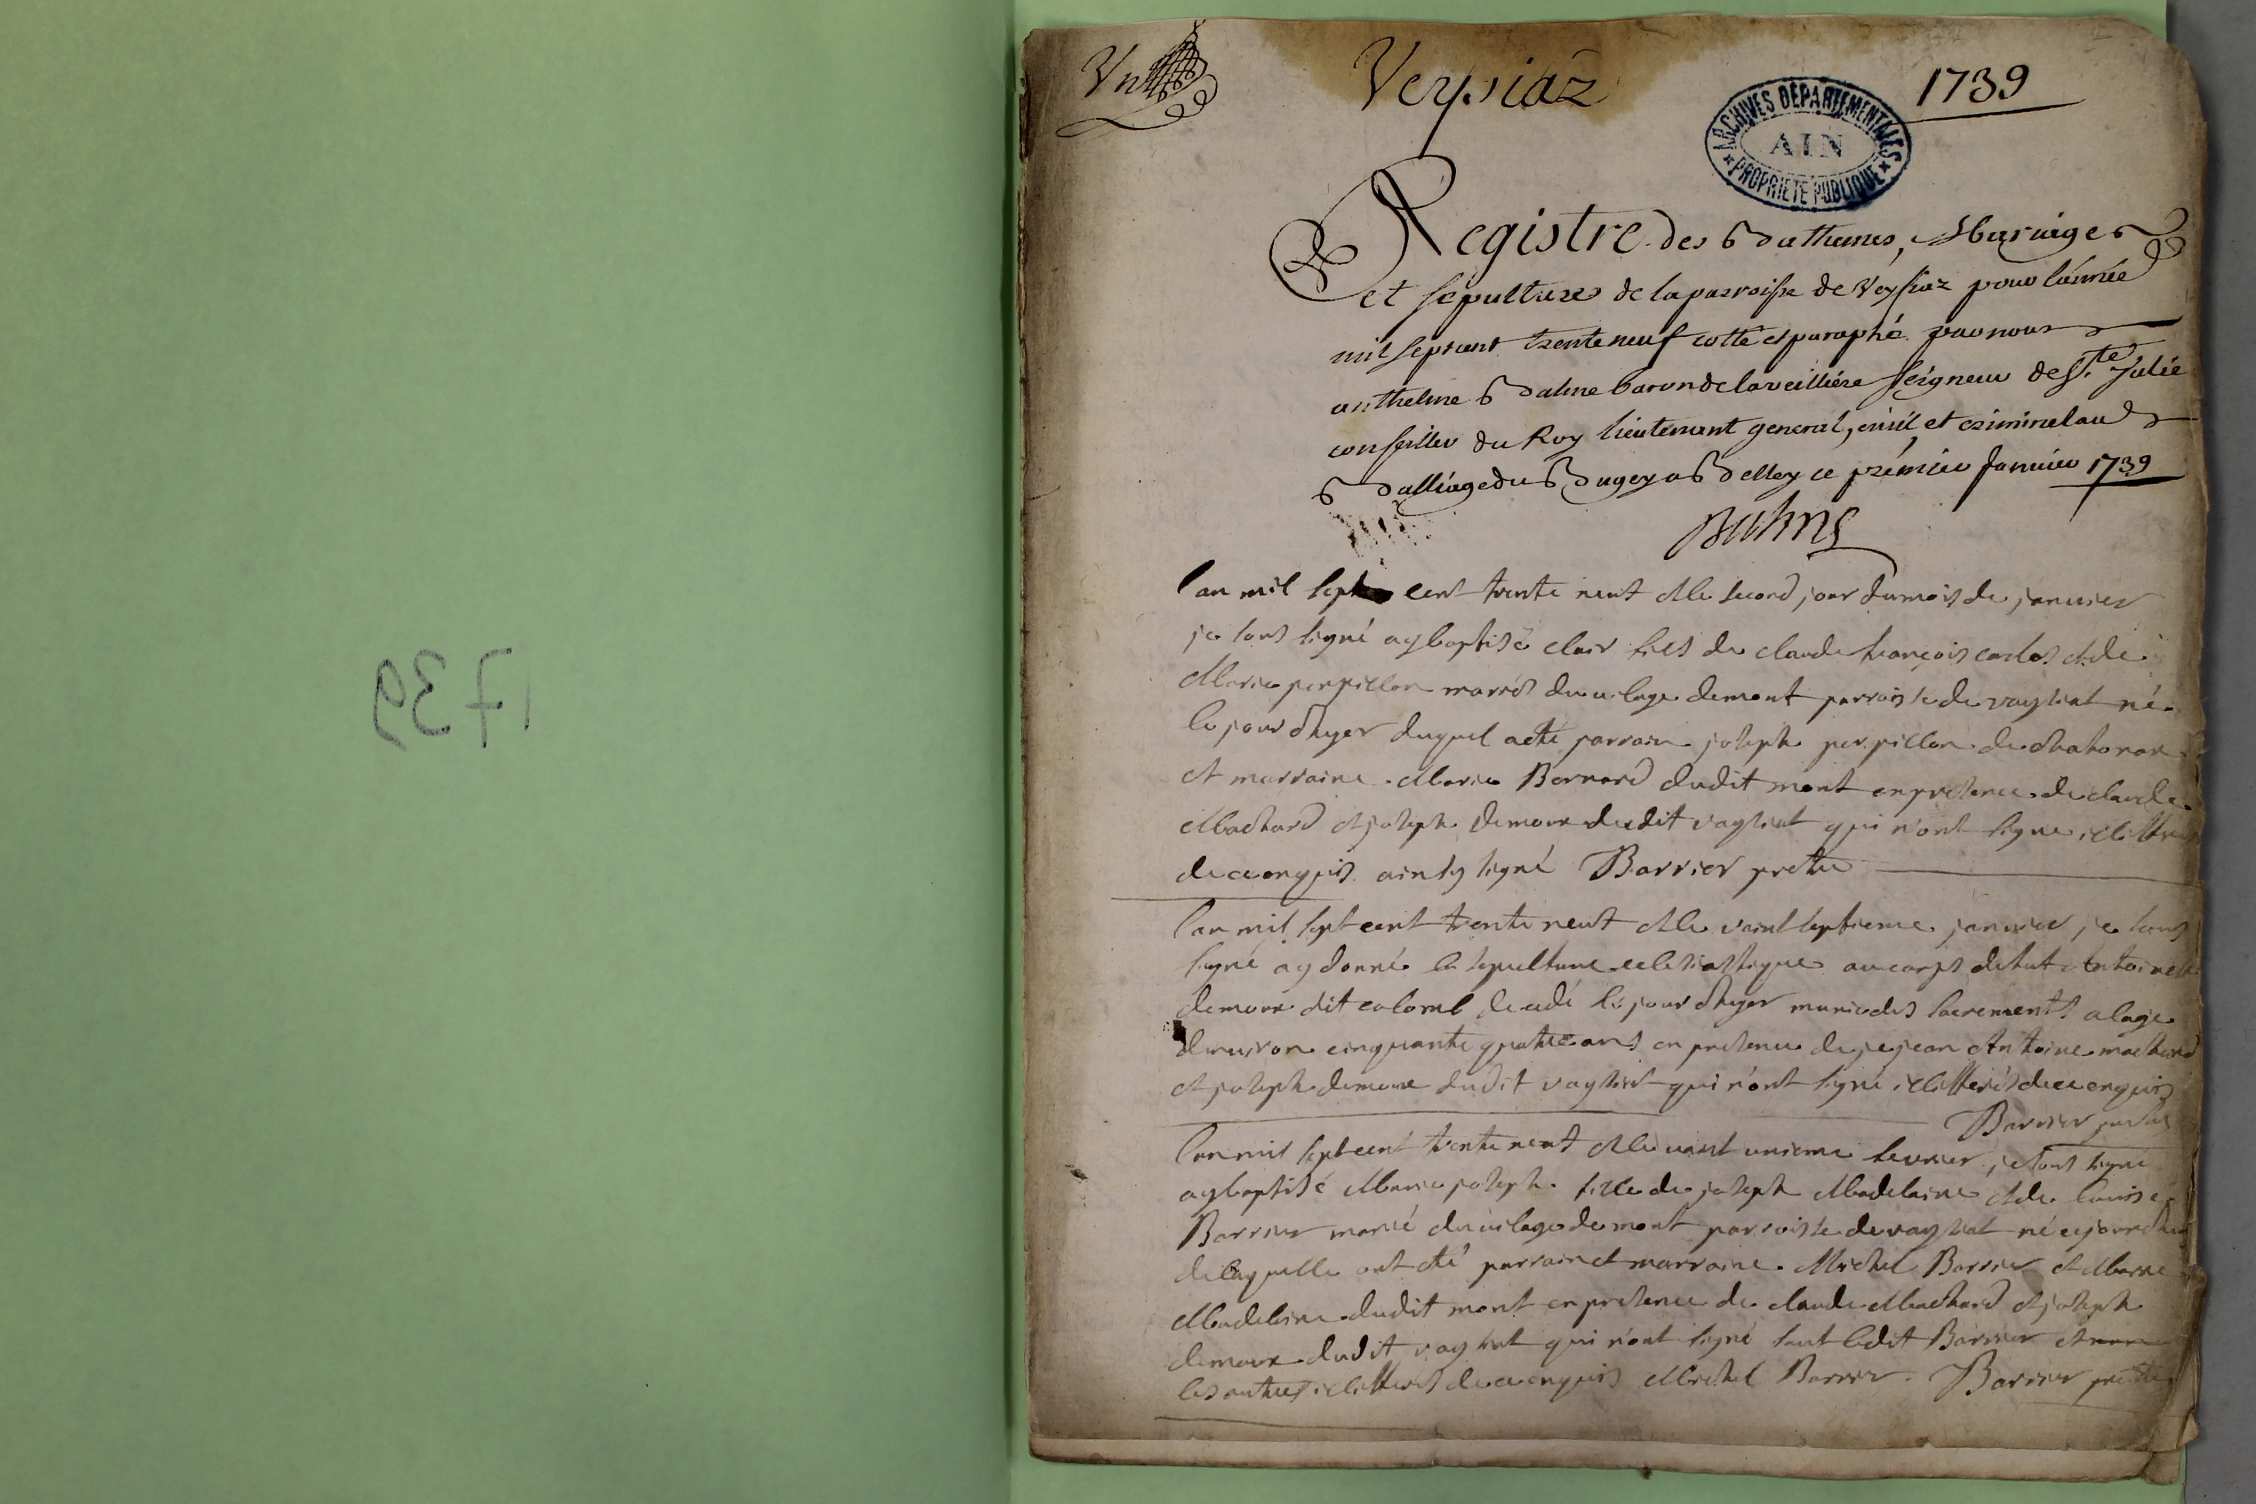 1739
Un
Veysiaz
1739
ARCHIVES DÉPARTEMENTALES
AIN
PROPRIÉTÉ PUBLIQUE
Registre des Bathemes, Mariages
et sepultures de la parroisse de Veysiaz pour l'année
mil sept cent trente neuf cotté et paraphé par nous
anthelme Balme baron de la veilliére seigneur de Ste Julie
conseiller du Roy lieutenant general, civil et criminel au
Balliage du Bugey a Belley ce prémier Janvier 1739
Balme
l'an mil sept cent trente neuf et le second jour du mois de janvier
je sous signé ay baptisé clair fils de claude françois et de
Marie perpillon mariés du vilage de mont parroisse de vaysiat né
le jour d'hyer duquel a été parrain joseph perpillon de
et marraine Marie Bernard dudit mont en presence de claude
Machard et joseph demoux dudit vaysiat qui n'ont signé illitterés
de ce enquis ainsy signé Barrier pretre
l'an mil sept cent trente neuf et le vaint septieme janvier je sous
signé ay donné la sepulture eclesiastique au corps de fut Antoine
demoux dit colomb decedé le jour d'hyer munie des sacrements a l'age
d'environ cinquante quatre ans en presence de jean Antoine machard
et joseph demoux dudit vaysiat qui n'ont signé illitterés de ce enquis
Barrier pretre
l'an mil sept cent trente neuf et le vaint unieme fevrier je sous signé
ay baptisé Marie joseph fille de joseph Madelaine et de louise
Barrier marié du vilage de mont parroisse de vaysiat né ce jourd'huy
de laquelle ont été parrain et marraine Michel Barrier et Marie
Madelaine dudit mont en presence de claude Machard et joseph
demoux dudit vaysiat qui n'ont signé sauf ledit Barrier et non
les autres illitterés de ce enquis Michel Barrier. Barrier pretre